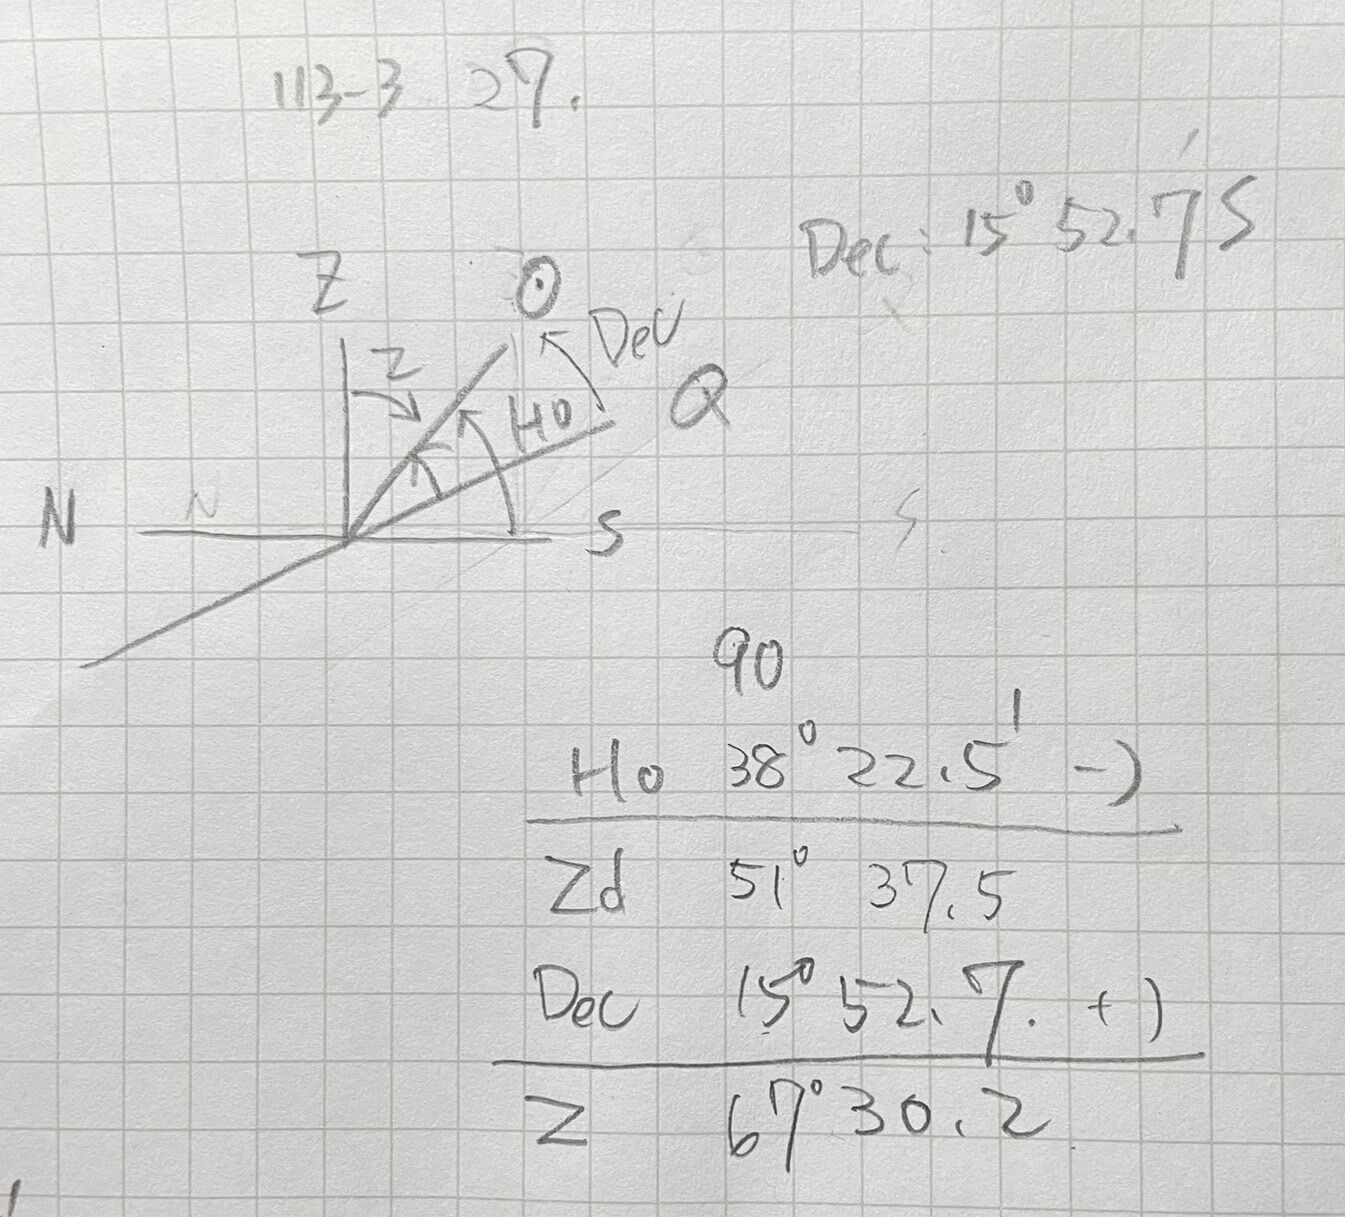 113-3 27.
Dec: 15° 52.7' S
Z ⊙
Z Dec
Ho Q
N N S S
90
Ho 38° 22.5' -)
Zd 51° 37.5
Dec 15° 52.7. +)
Z 67° 30.2